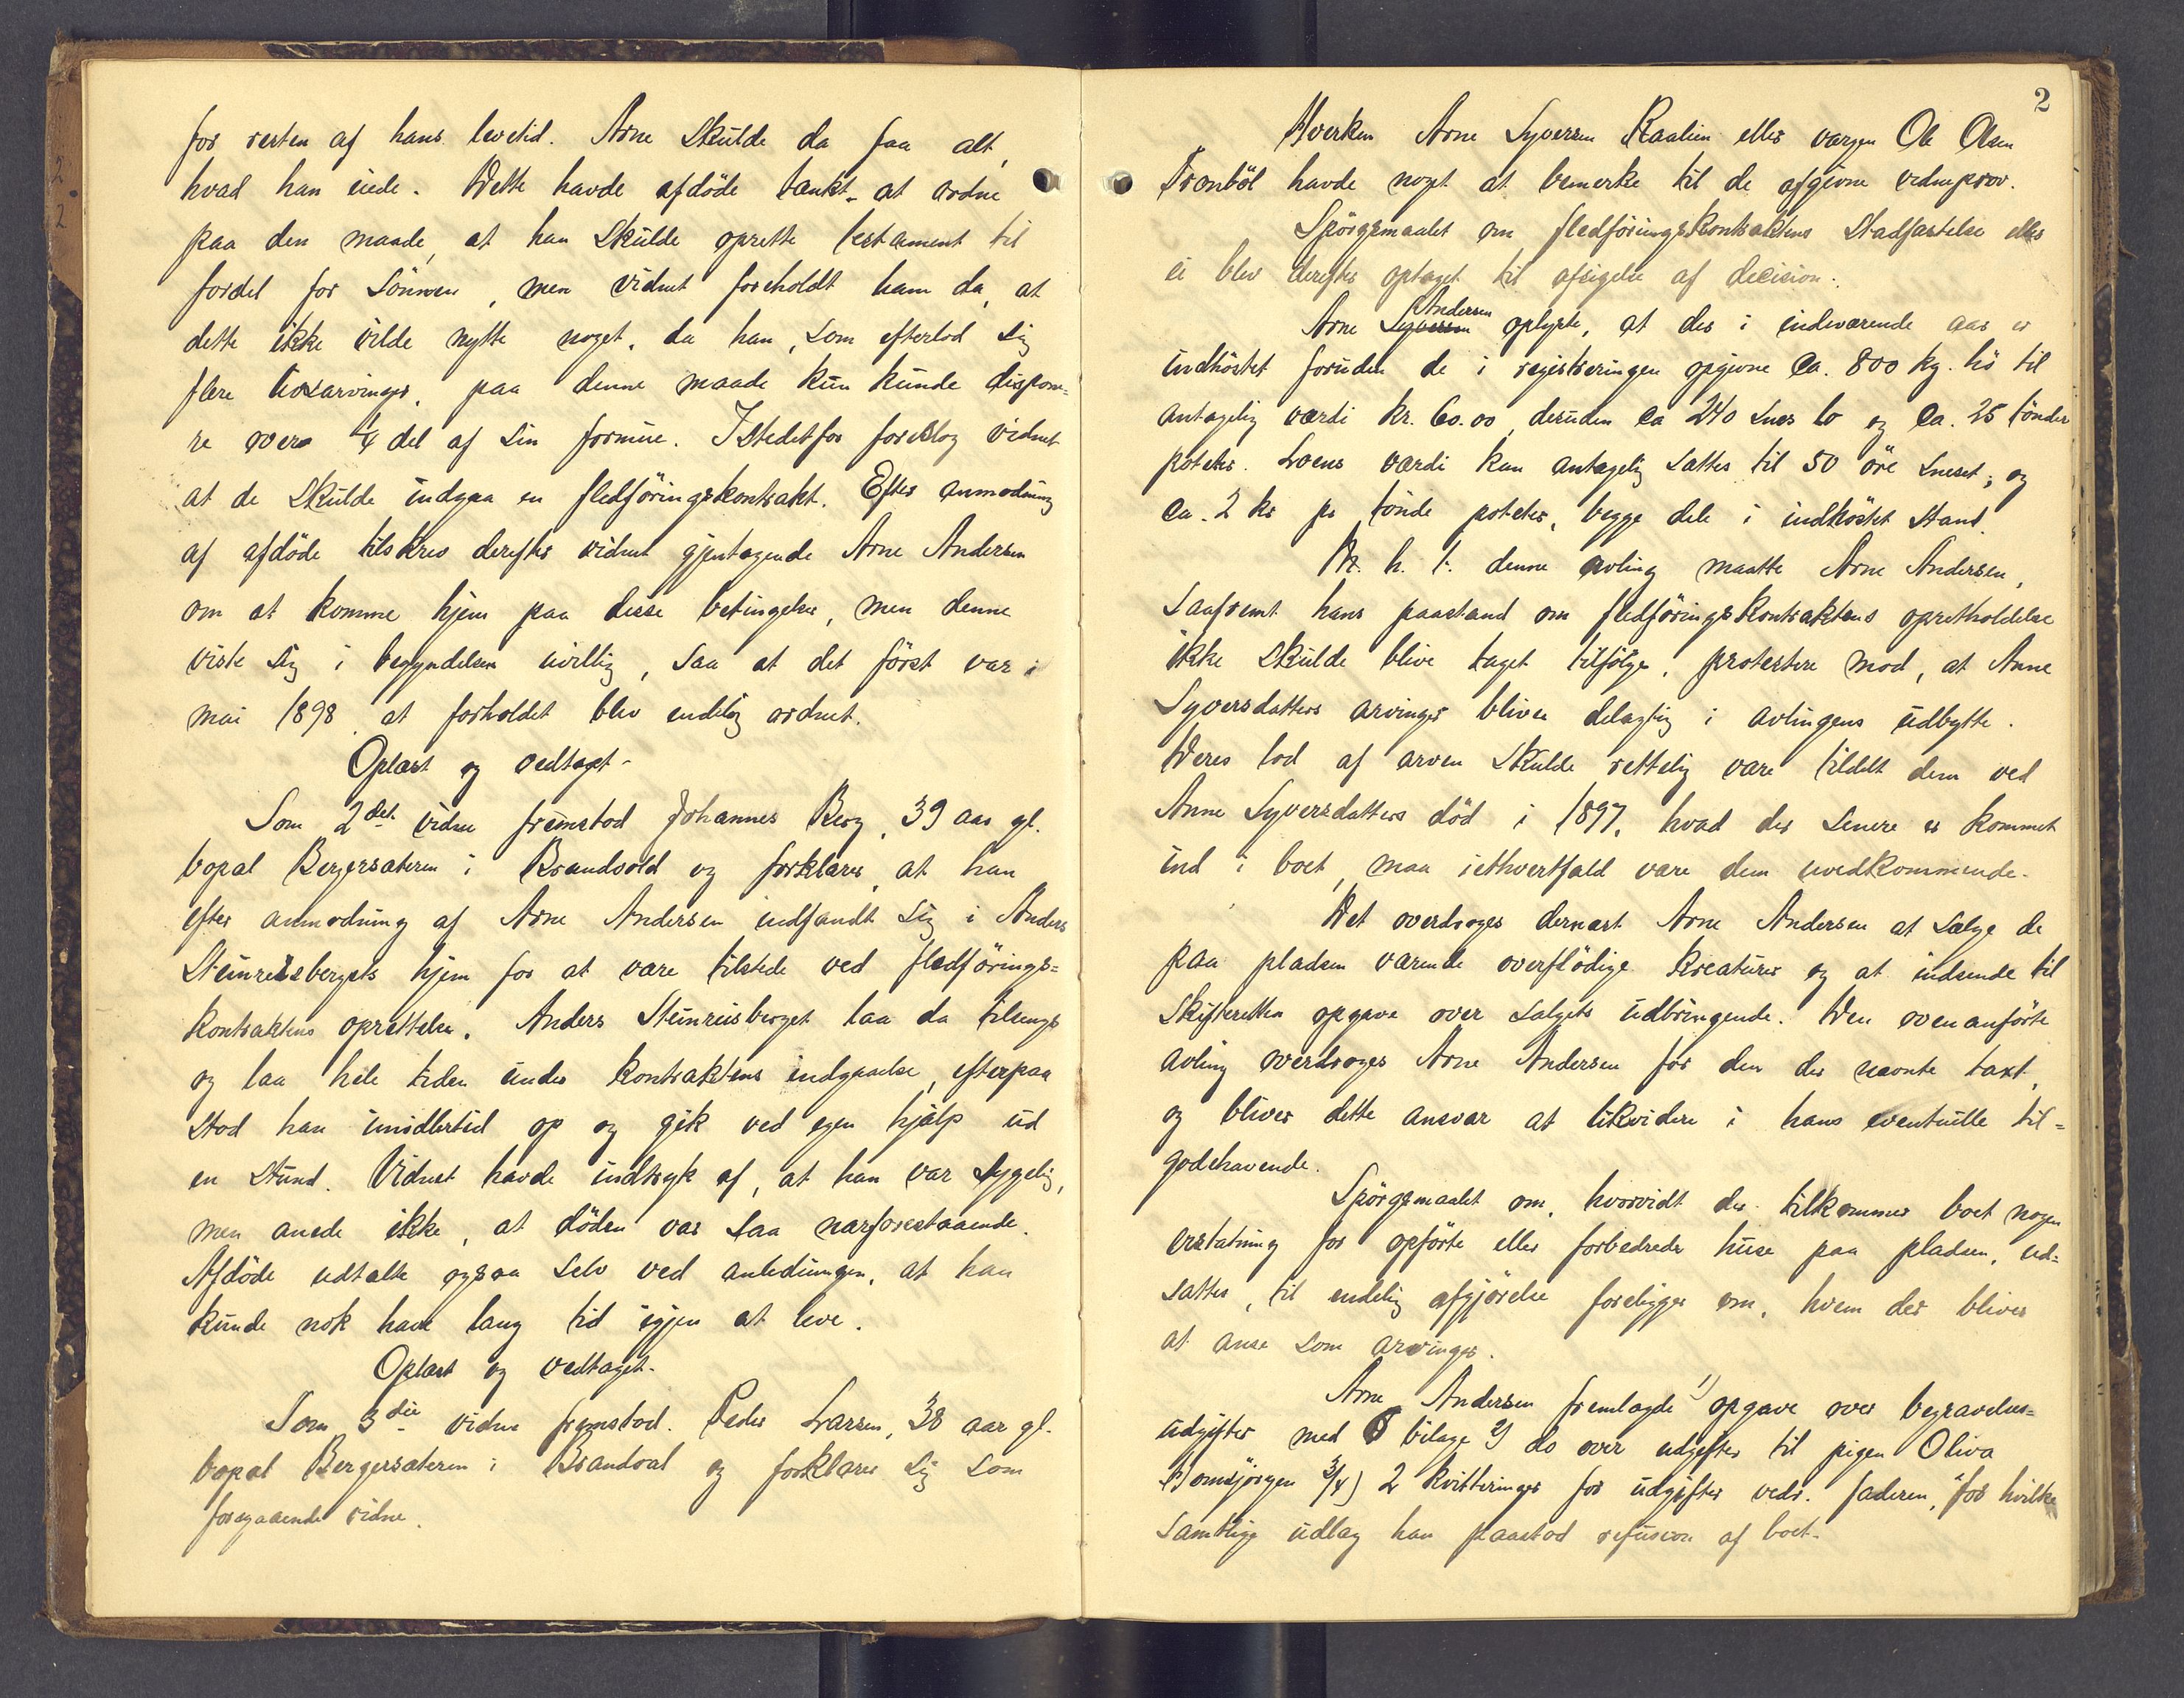 for resten af hans levetid. Arne skulde da faa alt,
hvad han eiede. Dette havde afdöde tænkt at ordne
paa den maade, at han skulde oprette testament til
fordel for sönnen, men vidnet foreholdt ham da, at
dette ikke vilde nytte noget, da han, som efterlod sig
flere livsarvinger, paa denne maade kun kunde dispone-
re over ¼ del af sin formue. Istedetfor foreslog vidnet
at de skulde indgaa en fledföringskontrakt. Efter anmodning
af afdöde tilskrev derefter vidnet gjentagende Arne Andersen
om at komme hjem paa disse betingelser, men denne
viste sig i begyndelsen uvillig, saa at det först var i
mai 1898, at forholdet blev endelig ordnet.
Oplæst og vedtaget.
Som 2det vidne fremstod Johannes Berg, 39 aar gl.
bopæl Bergersæteren i Brandvold og forklarer, at han
efter anmodning af Arne Andersen indfandt sig i Anders
Steinreisbergets hjem for at være tilstede ved fledförings-
kontraktens oprettelse. Anders Steinreisberget laa da tilsengs
og laa hele tiden under kontraktens indgaaelse, efterpaa
stod han imidlertid op og gik ved egen hjælp ud
en stund. Vidnet havde indtryk af, at han var sygelig,
men anede ikke, at döden var saa nærforestaaende.
Afdöde udtalte ogsaa selv ved anledningen, at han
kunde nok have lang tid igjen at leve.
Oplæst og vedtaget.
Som 3die vidne fremstod Peder Larsen, 38 aar gl.
bopæl Bergersæteren i Brandval og forklarer sig som
foregaaende vidne.
2
Hverken Arne Syversen Raalien eller vergen Ole Olsen
Tronböl havde noget at bemerke til de afgivne vidneprov.
Spörgsmaalet om fledföringskontraktens stadfæstelse eller
ei blev derefter optaget til afsigelse af decision.
Arne Syversen Andersen oplyste, at der i indeværende aar er
indhöstet foruden de i registreringen opgivne ca. 800 kg. hö til
antagelig værdi kr. 60.00, desuden ca 240 snes lo og ca. 25 tönder
poteter. Loens værdi kan antagelig sættes til 50 öre sneset, og
ca. 2 kr pr tönde poteter, begge dele i indhöstet stand.
M. h. t. denne avling maatte Arne Andersen,
saafremt hans paastand om fledföringskontraktens opretholdelse
ikke skulde blive taget tilfölge, protestere mod, at Anne
Syversdatters arvinger bliver delagtig i avlingens udbytte.
Deres lod af arven skulde rettelig være tildelt dem ved
Anne Syversdatters död i 1897, hvad der senere er kommet
ind i boet, maa iethvertfald være dem uvedkommende.
Det overdroges dernæst Arne Andersen at sælge de
paa pladsen værende overflödige kreaturer og at indsende til
skifteretten opgave over salgets udbringende. Den ovenanförte
avling overdroges Arne Andersen for den der nævnte taxt,
og bliver dette ansvar at likvidere i hans eventuelle til-
godehavende.
Spörgsmaalet om, hvorvidt der tilkommer boet nogen
erstatning for opförte eller forbedrede huse paa pladsen, ud-
sættes, til endelig afgjörelse foreligger om, hvem der bliver
at anse som arvinger.
Arne Andersen fremlagde 1) opgave over begravelses-
udgifter med 5 bilage 2) do over udgifter til pigen Oliva
3/4) 2 kvitteringer for udgifter vedr. faderen, for hvilke
samtlige udlæg han paastod refusion af boet.